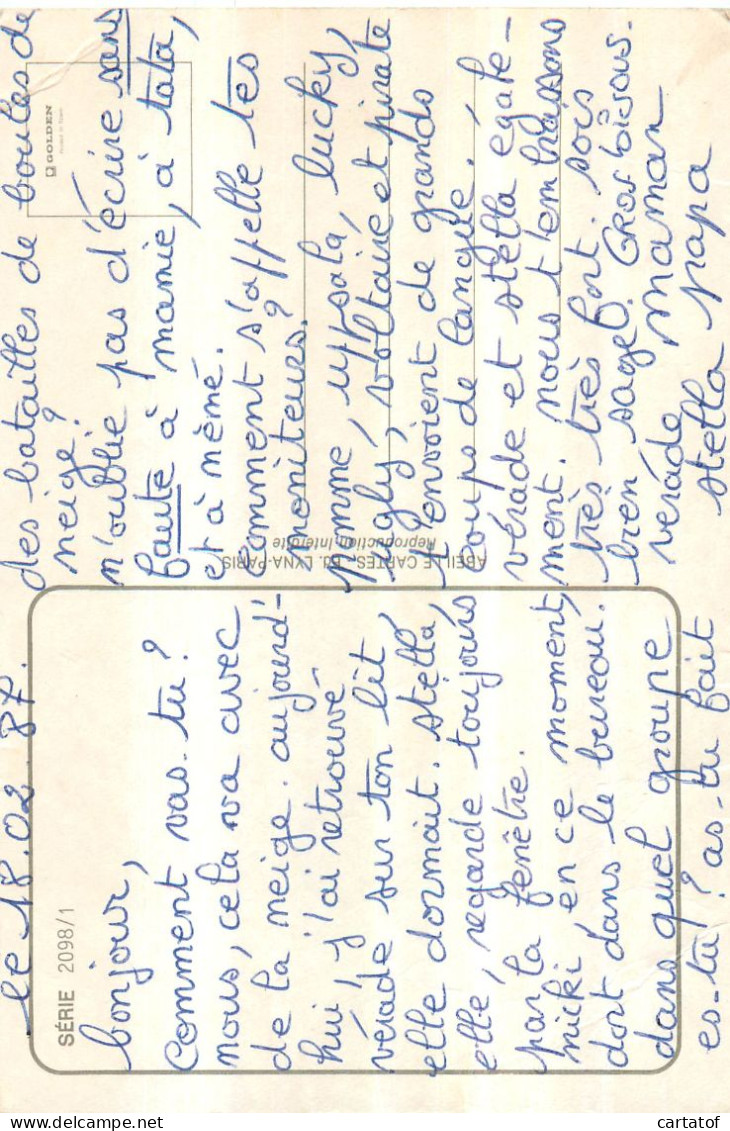 le 18.02.87.
SÉRIE 2098/1
bonjour,
Comment vas-tu?
nous, cela va avec
de la neige. aujourd-
hui, j'ai retrouvé
vérade sur ton lit,
elle dormait. stella,
elle, regarde toujours
par la fenêtre.
micki en ce moment,
dort dans le bureau.
dans quel groupe
es-tu? as-tu fait
des batailles de boules de
neige?
n'oublie pas d'écrire sans
faute à mamie, à tata,
et à mémé.
comment s'appelle tes
moniteurs?
Pomme, upsala, lucky,
ugly, voltaire et pirate
t'envoient de grands
coups de langue.
vérade et stella égale-
ment. nous t'embrassons
très très fort. sois
bien sage. Gros bisous.
vérade maman
stella papa
GOLDEN
ABEILLE CARTES - Ed. LYNA-PARIS
Reproduction Interdite
cartatof